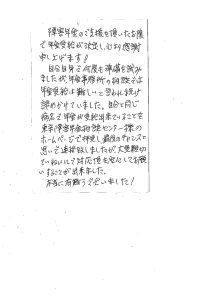 障害年金のご支援を頂いたお陰
で年金受給が決定し、心から感謝
申し上げます!
自分自身で何度も準備を試み
ましたが、年金事務所の相談では
年金受給は難しいと言われ続け
諦めかけていました。自分と同じ
病名で年金が受給出来ていることを
東京障害年金相談センター様の
ホームページで拝見し最後のチャンスと
思いで連絡致しましたが、大変親切
でていねいに対応頂き安心してお願
いすることが出来ました。
本当に有難うございました!